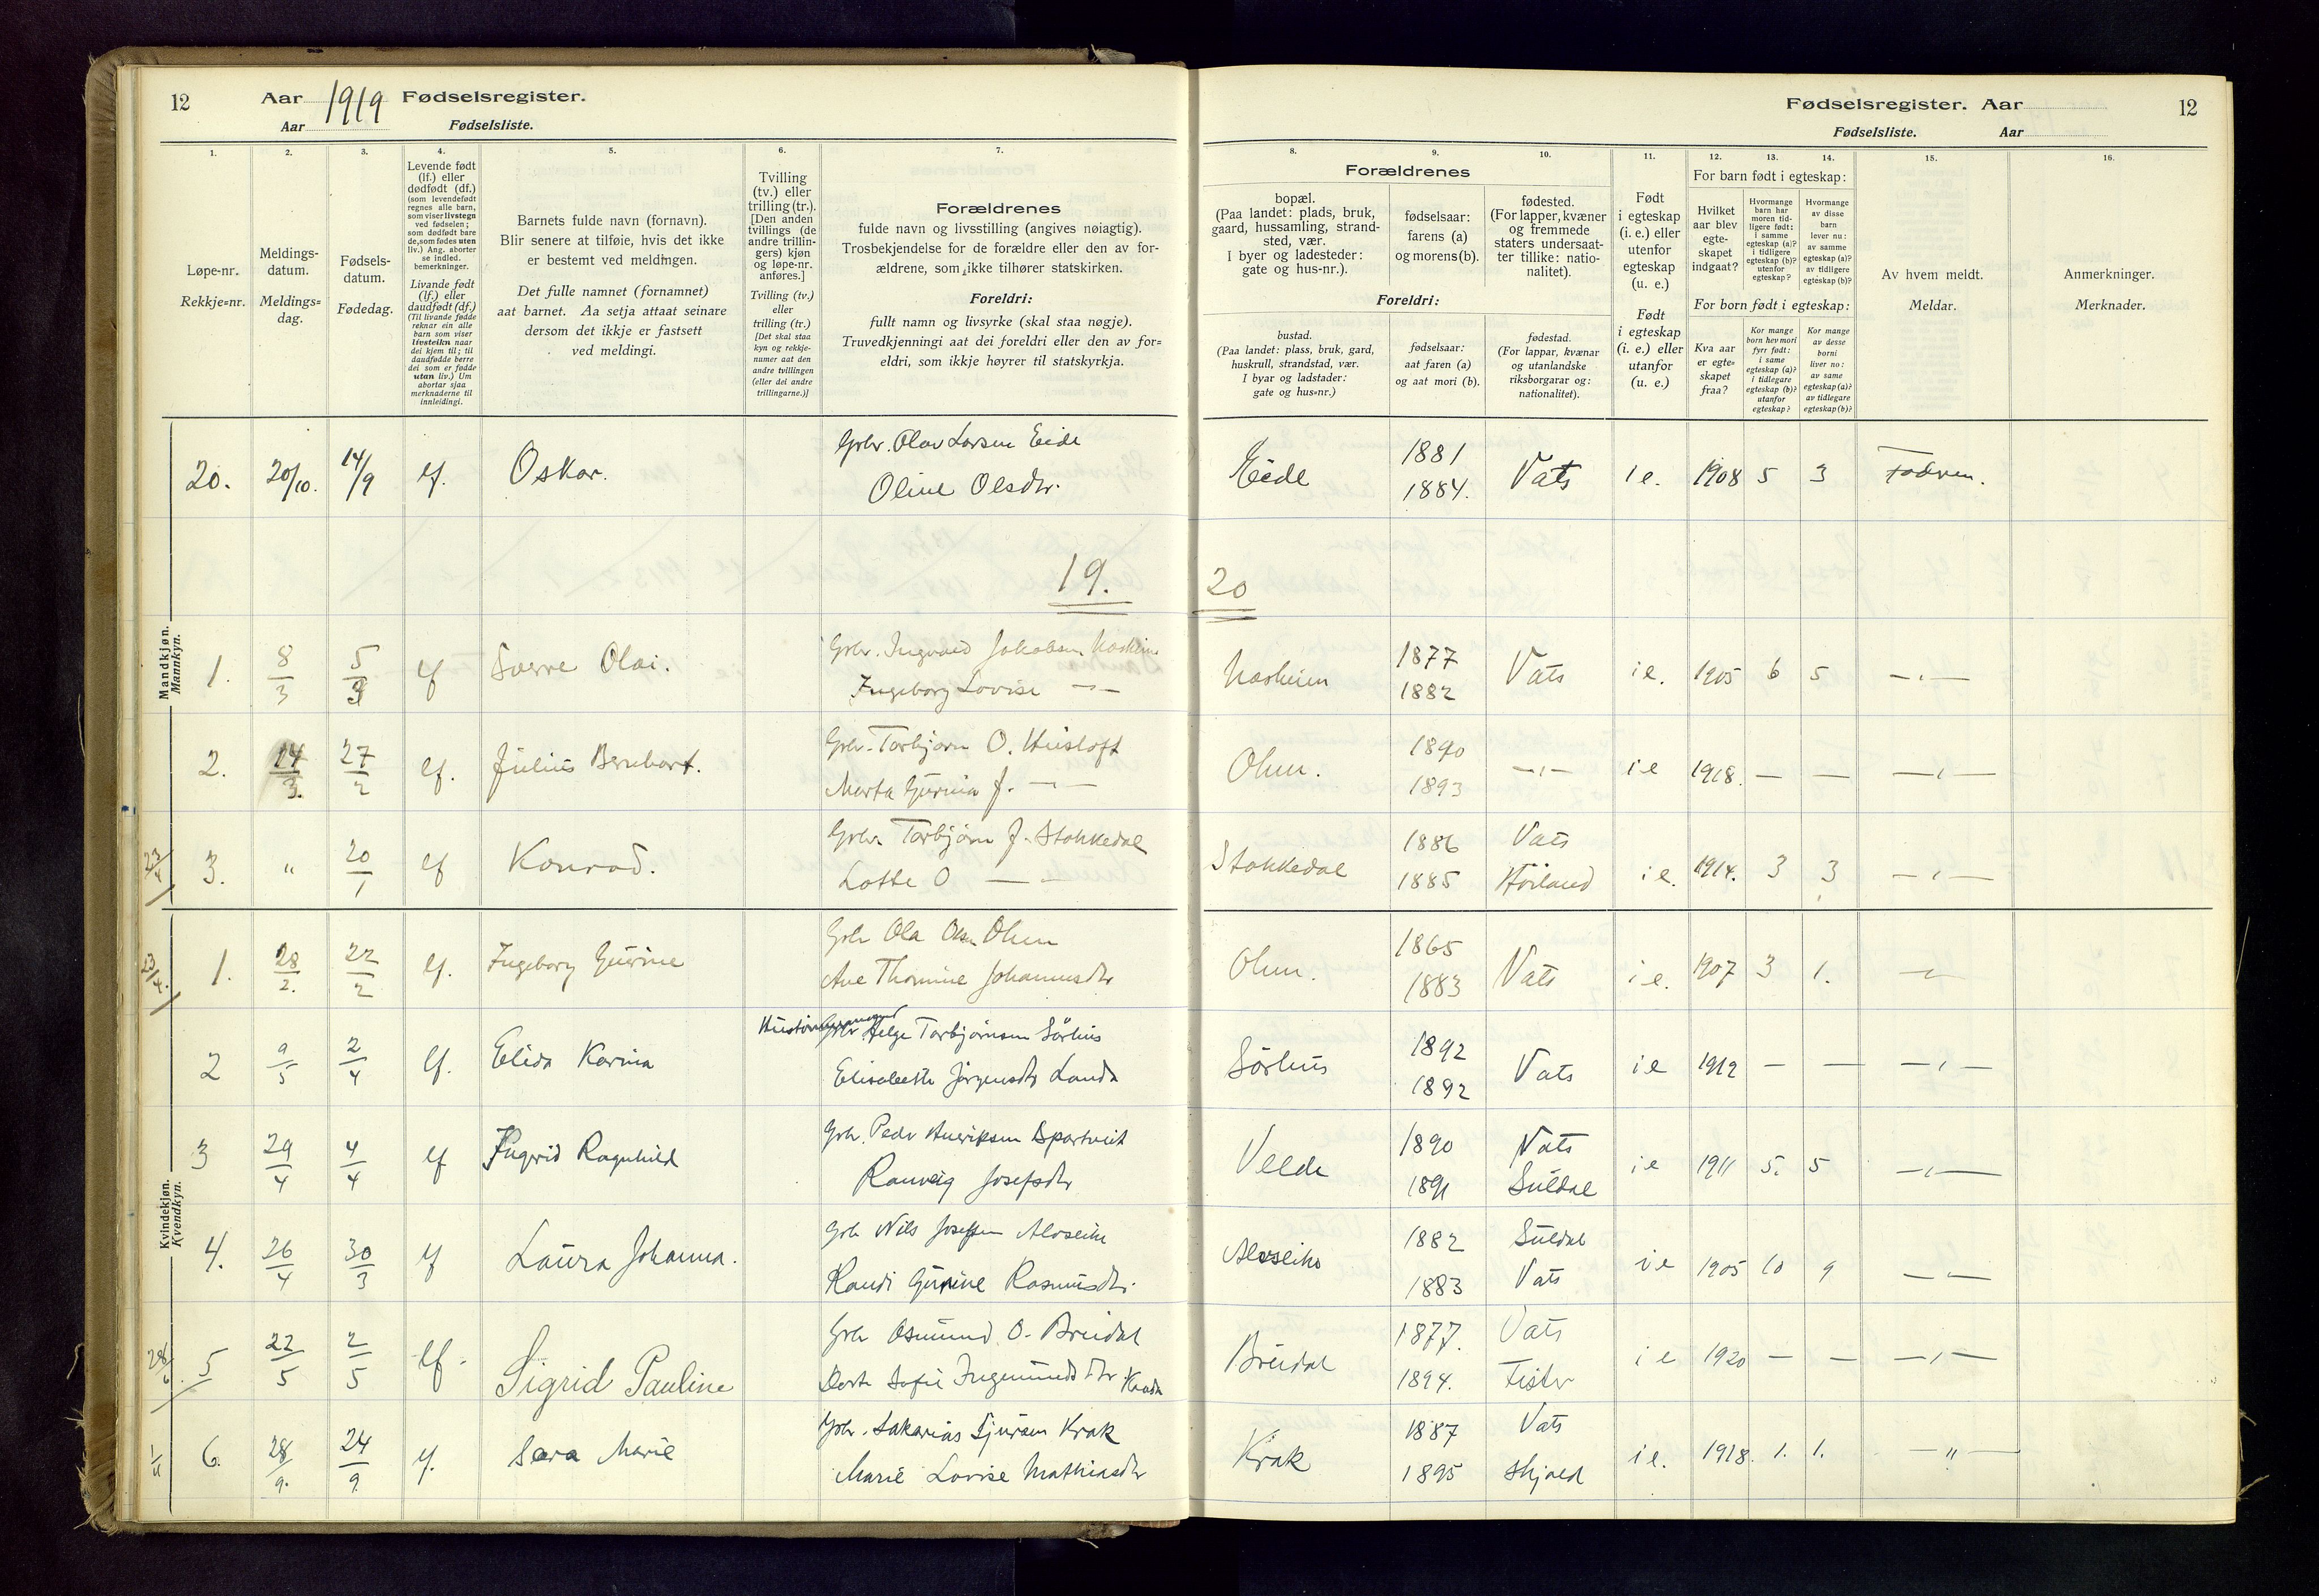 12
Aar 1919 Fødselsregister.
Aar Fødselsliste.
1.
2.
3.
4.
5.
6.
7.
Løpe-nr.
Rekkje=nr.
Meldings-
datum.
Meldings=
dag.
Fødsels-
datum.
Fødedag.
Levende født
(lf.) eller
dødfødt (df.)
(som levendefødt
regnes alle barn,
som viser livstegn
ved fødselen;
som dødfødt bare
de, som fødes uten
liv.) Ang. aborter
se indled.
bemerkninger.
Livande født
(lf.) eller
daudfødt (df.)
(Til livande fødde
reknar ein alle
barn som viser
livsteikn naar
dei kjem til; til
daudfødde berre
dei som er fødde
utan liv.) Um
abortar sjaa
merknaderne til
innleidingi.
Barnets fulde navn (fornavn).
Blir senere at tilføie, hvis det ikke
er bestemt ved meldingen.
Det fulle namnet (fornamnet)
aat barnet. Aa setja attaat seinare
dersom det ikkje er fastsett
ved meldingi.
Tvilling
(tv.) eller
trilling (tr.).
[Den anden
tvillings (de
andre trillin-
gers) kjøn
og løpe-nr.
anføres.]
Tvilling (tv.)
eller
trilling (tr.)
[Det skal staa
kyn og rekkje-
numer aat den
andre tvillingen
(eller dei andre
trillingarne.)]
Forældrenes
fulde navn og livsstilling (angives nøiagtig).
Trosbekjendelse for de forældre eller den av for-
ældrene, som ikke tilhører statskirken.
Foreldri:
fullt namn og livsyrke (skal staa nøgje).
Truvedkjenningi aat dei foreldri eller den av for=
eldri, som ikkje høyrer til statskyrkja.
Fødselsregister. Aar 12
Fødselsliste. Aar
8.
9.
10.
11.
12.
13.
14.
15.
16.
Forældrenes
bopæl.
(Paa landet: plads, bruk,
gaard, hussamling, strand-
sted, vær.
I byer og ladesteder:
gate og hus-nr.).
fødselsaar:
farens (a)
og morens (b).
fødested.
(For lapper, kvæner
og fremmede
staters undersaat-
ter tillike: natio-
nalitet).
Foreldri:
bustad.
(Paa landet: plass, bruk, gard,
huskrull, strandstad, vær.
I byar og ladstader:
gate og hus=nr.)
fødselsaar:
aat faren (a)
og aat mori (b).
fødestad.
(For lappar, kvænar
og utanlandske
riksborgarar og:
nationalitet).
Født
i egteskap
(i. e.) eller
utenfor
egteskap
(u. e.)
Født
i egteskap
(i. e.) eller
utanfor
egteskap
(u. e.)
For barn født i egteskap:
Hvilket
aar blev
egte-
skapet
indgaat?
Hvormange
barn har
moren tid-
ligere født:
i samme
egteskap (a)?
i tidligere
egteskap (b)?
utenfor
egteskap?
Hvormange
av disse
barn
lever nu:
av samme
egteskap (a)?
av tidligere
egteskap (b)?
For born født i egteskap:
Kva aar
er egte-
skapet
fraa?
Kor mange
born hev mori
fyrr født:
i same
egteskap (a)?
i tidlegare
egteskap (b)?
utanfor
egteskap?
Kor mange
av desse
borni
liver no:
av same
egteskap (a)?
av tidlegare
egteskap (b)?
Av hvem meldt.
Meldar.
Anmerkninger.
Merknader.
Mandkjøn.
Mannkyn.
20. 20/10. 14/9 lf. Oskar. Grbr. Olav Larsen Eide Eide 1881 Vats i e. 1908 5 3 Faderen.
Oline Olsdtr. 1884.
19. 20
1. 8/3 5/3 lf Sverre Olai. Grbr. Ingvald Jakobsen Nasheim Nasheim 1877 Vats i e. 1905 6 5 — „ —
Ingeborg Lovise — „ — 1882
2. 14/3. 27/2 lf. Julius Bernhart. Grbr. Torbjørn O. Husloft Ohm. 1890 — „ — i e 1918. — — — „ —
Marta Gurina J. — „ — 1893
23/4 3. „ 20/1 lf Konrad. Grbr. Torbjørn J. Stokkedal Stokkedal 1886 Vats i e. 1914. 3 3 — „ —
Lotte O — „ — 1885 Hörland
Kvindekjøn.
Kvendkyn.
23/4. 1. 28/2. 22/2 lf. Ingeborg Gurine Grbr Ola Olsn Ohm Ohm. 1865 Vats i e. 1907 3 1. — „ —
Ane Thomine Johannesdtr 1883
2 9/5 2/4 lf. Elida Karina Grbr Helge Torbjørnsen Sörhus Sörhus 1892 Vats i e 1912 — — — „ —
Elisabeth Jörgensdtr Landa 1892
3 29/4 4/4 lf Ingrid Ragnhild Grbr. Peder Henriksen Bjortveit Velde 1890 Vats i e 1911 5. 5 — „ —
Ranveig Josefsdtr 1891 Suldal
4. 26/4 30/3 lf Laura Johanna. Grbr Nils Josefsen Alvseike Alvseike 1882 Suldal i e 1905 10 9 — „ —
Randi Gurine Rasmusdtr. 1883 Vats
28/6 5 22/5 2/5 lf. Sigrid Pauline Grbr Osmund O. Breidal Breidal 1877. Vats i e 1920 — — — „ —
Dorte Sofie Ingemundsdtr 1894. Fister
1/11 6. 28/9. 24/9. lf. Sara Marie Grbr. Sakarias Sjursen Krak Krak 1887 Vats i e. 1918. 1. 1. — „ —
Marie Lovise Mathiasdtr 1895 Skjold